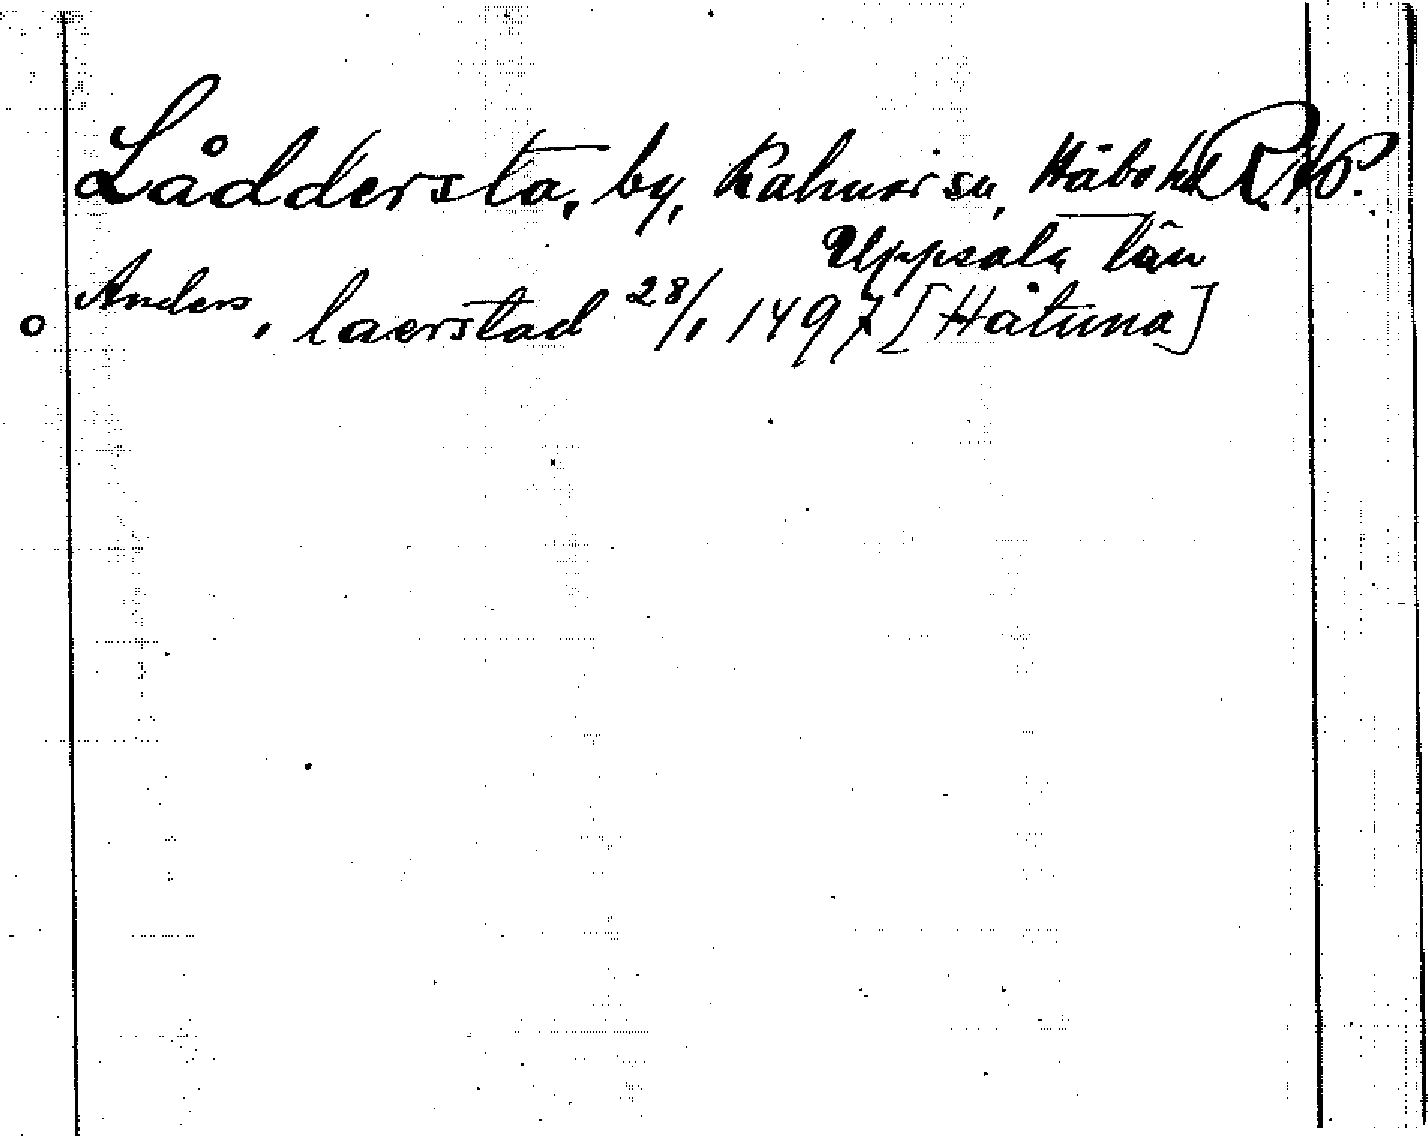 Låddersta, by, Kalmar sn, Håbo hd R. Hp.
Uppsala län
Anders, laerstad 28/1 1497 [Håtuna]